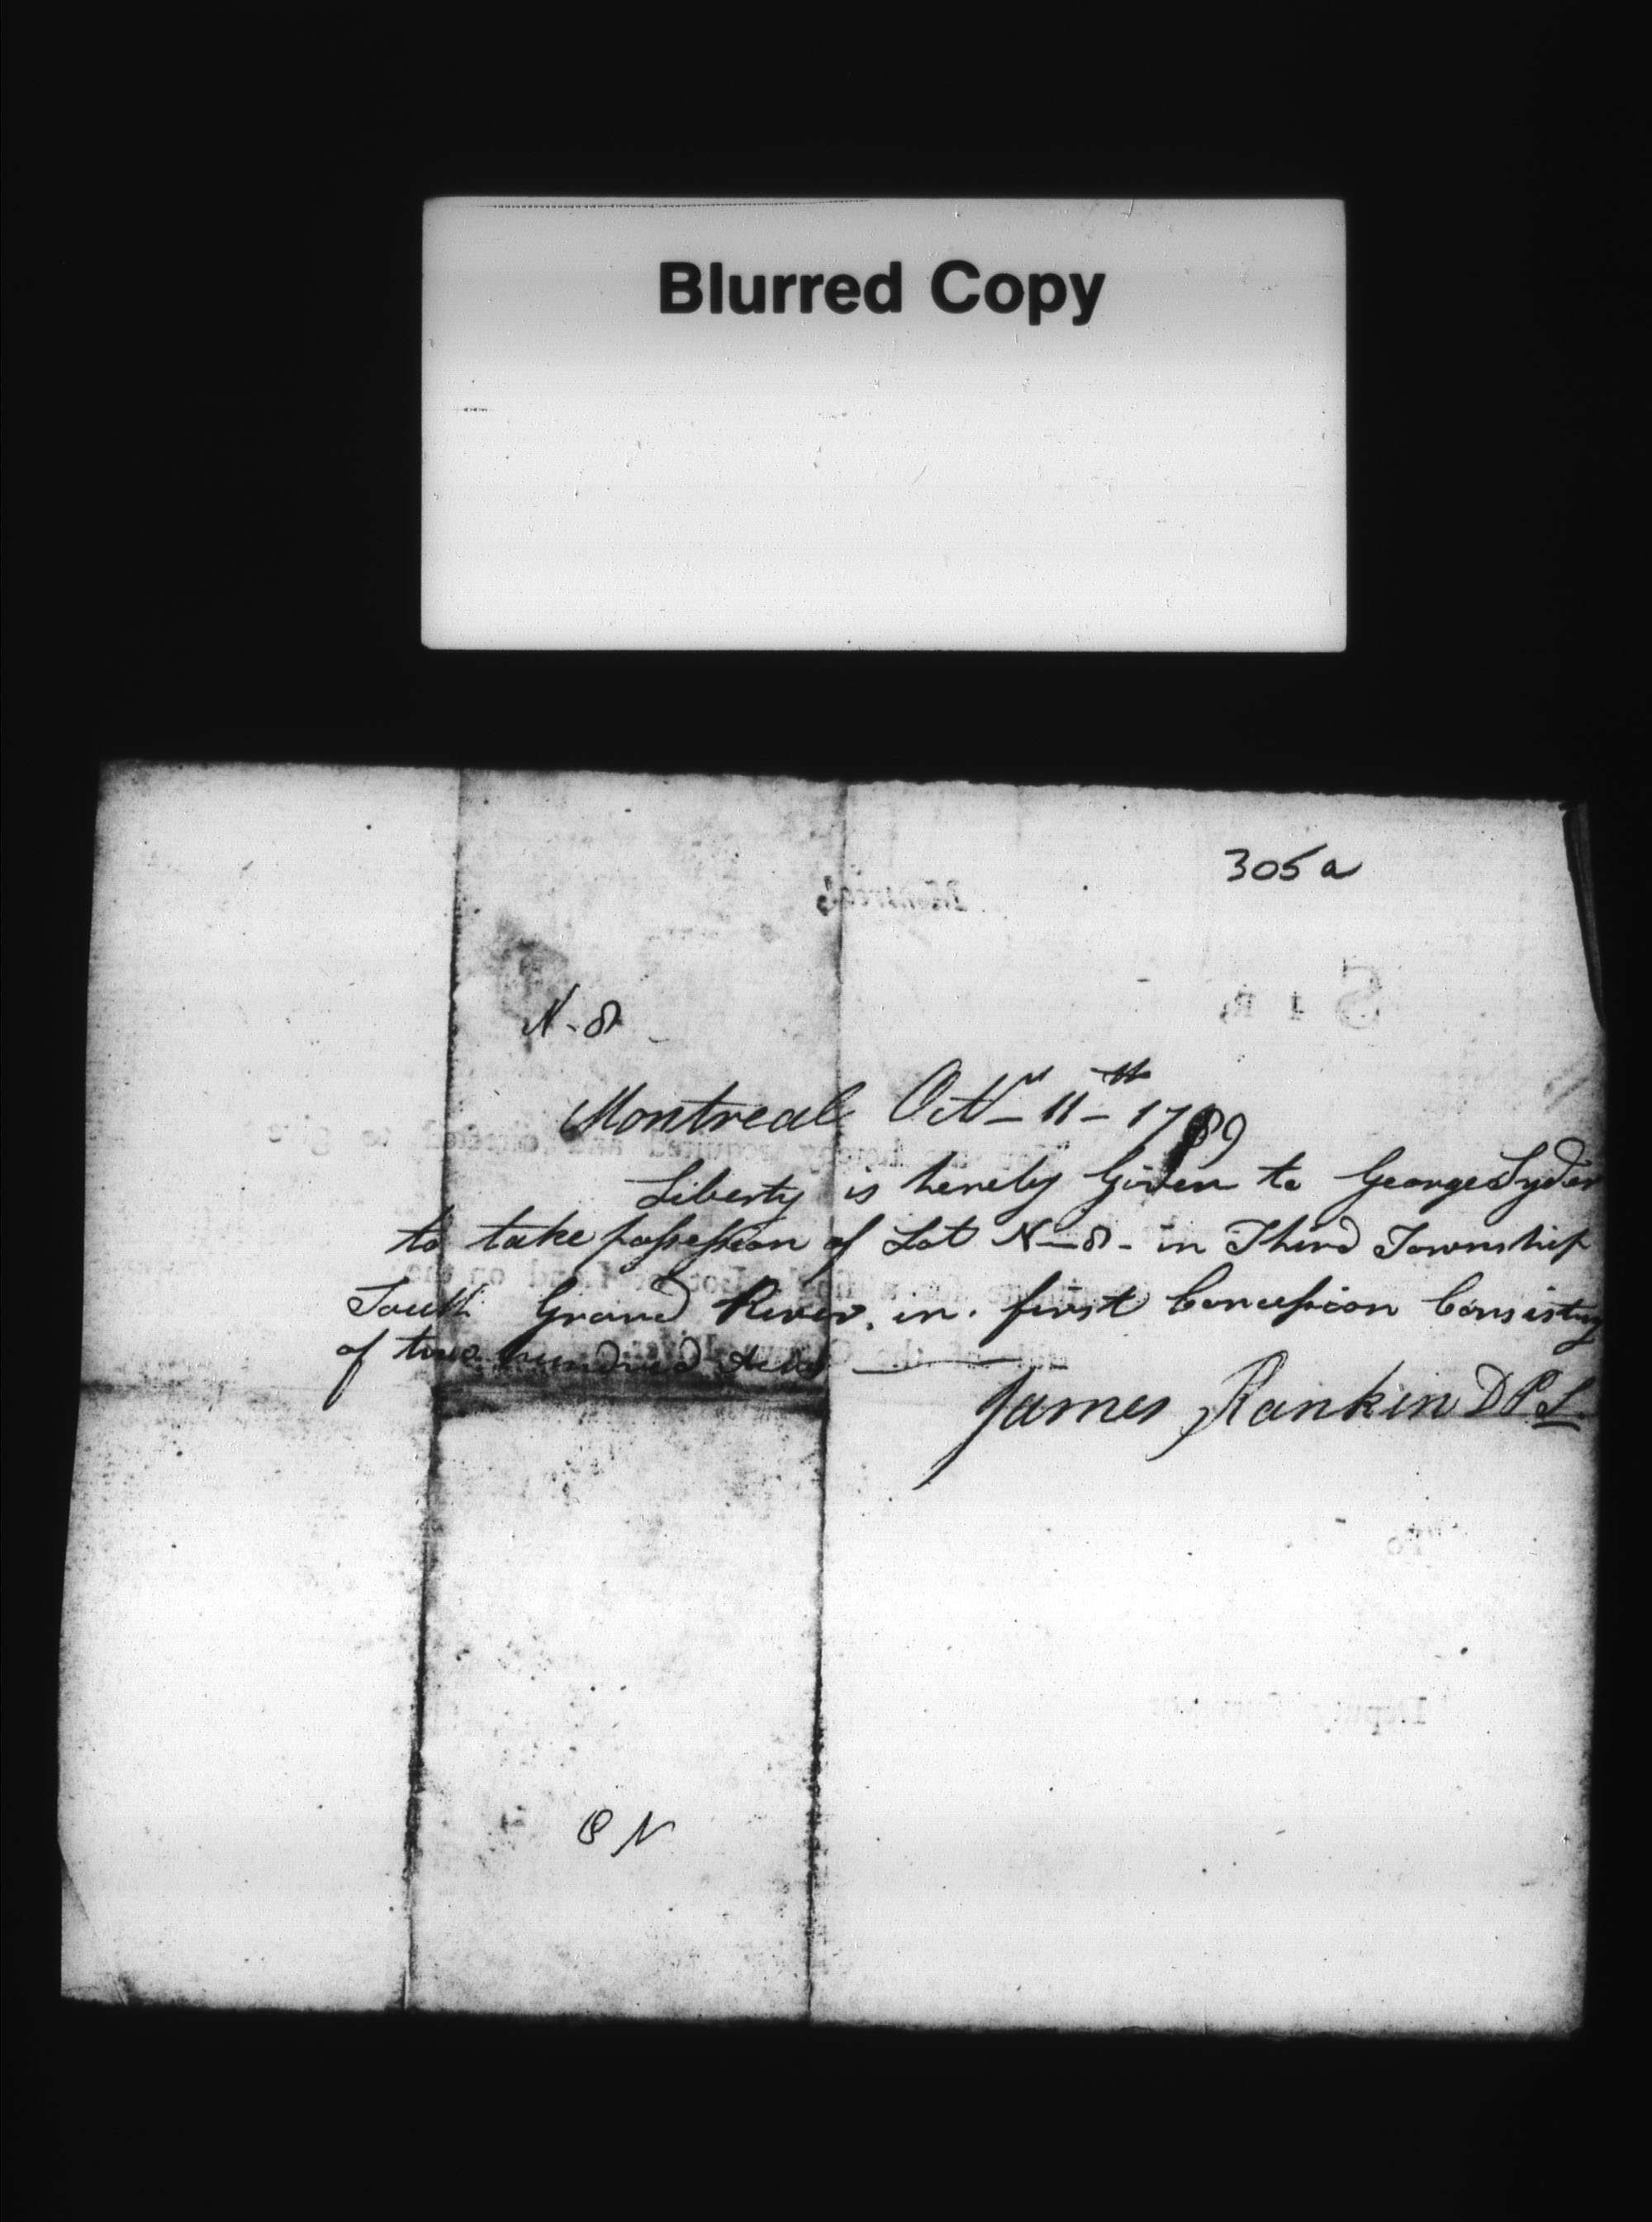 Blurred Copy
305a
N-8
Montreal Octr 11th 1789
Liberty is hereby Given to George Syder
to take possession of Lot N-8- in Third Township
South Grand River. in. first Concession Consisting
of two hundred Acres
James Rankin D P S
8 N